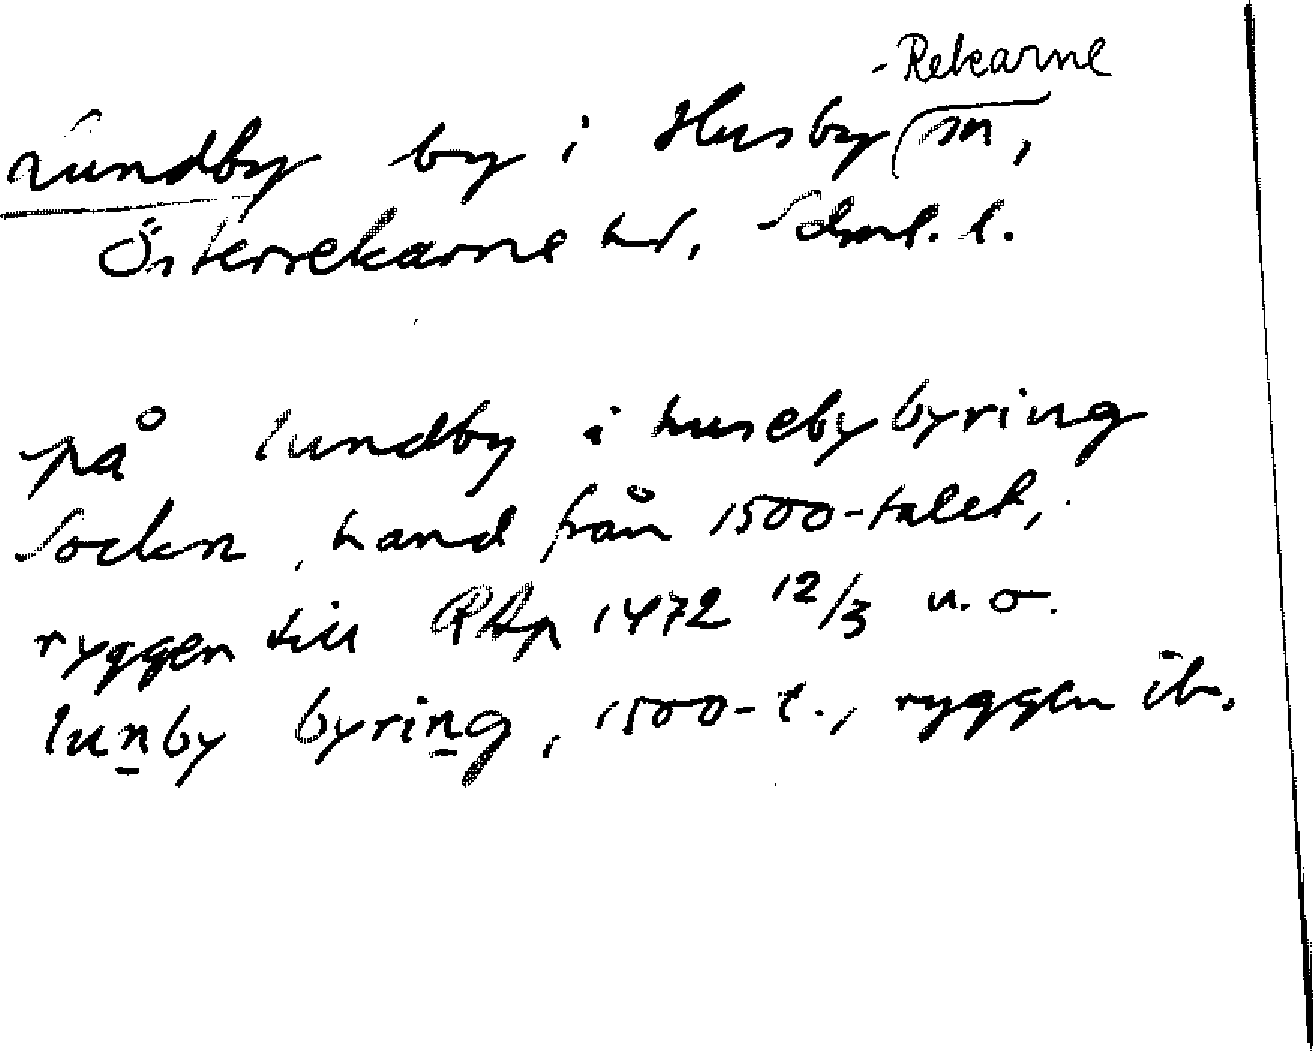 -Rekarne
Lundby by i Husby sn,
Österrekarne hd, Sdml. l.
på lundby i huseby byring
Socken, hand från 1500-talet,
ryggen till RAp 1472 12/3 u. o.
lunby byring, 1500-t., ryggen ib.